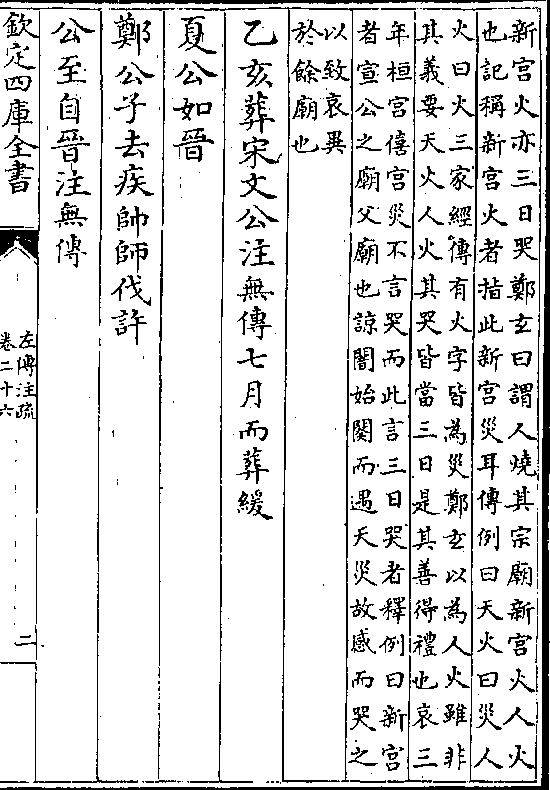 新宫火亦三日哭鄭玄曰謂人燒其宗廟新宫火人火
也記稱新宫火者指此新宫災耳傳例曰天火曰災人
火曰火三家經傳有火字皆為災鄭玄以為人火雖非
其義要天火人火其哭皆當三日是其善得禮也哀三
年桓宫僖宫災不言哭而此言三日哭者釋例曰新宫
者宣公之廟父廟也諒闇始闋而遇天災故感而哭之
以致哀異
於餘廟也
乙亥葬宋文公注無傳七月而葬緩
夏公如晉
鄭公子去疾帥師伐許
公至自晉注無傳
欽定四庫全書
左傳注疏
卷二十六
二